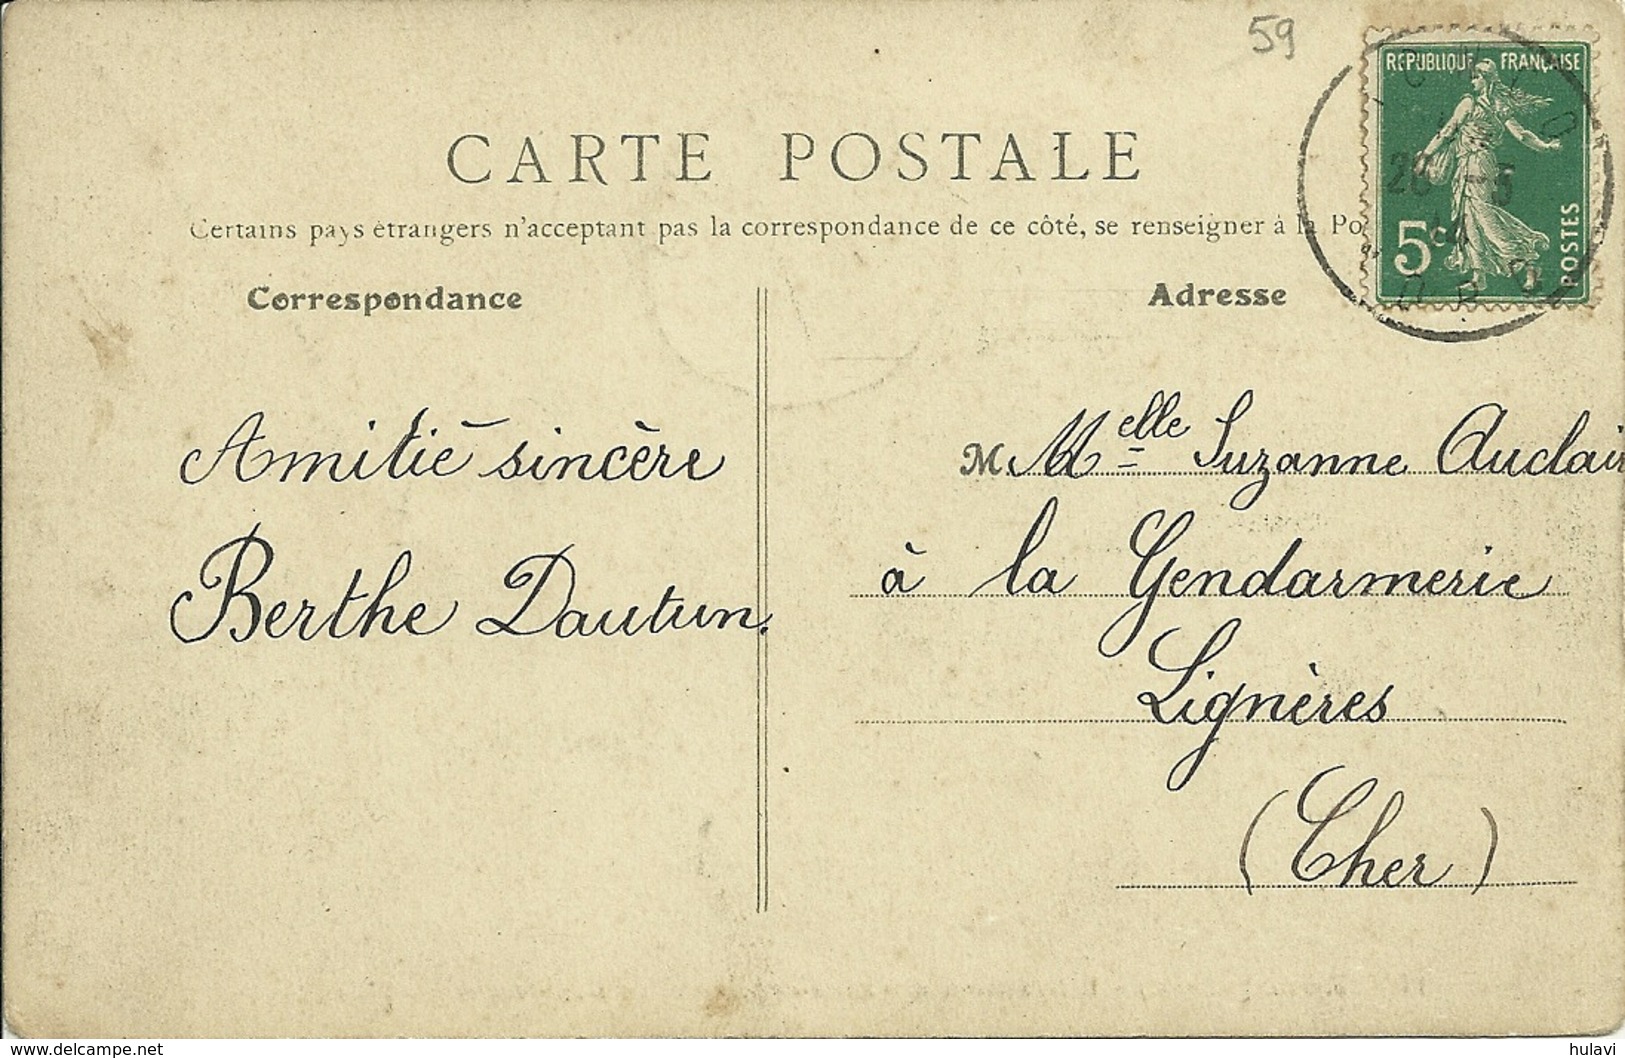 59
REPUBLIQUE FRANÇAISE
5c
POSTES
CARTE POSTALE
Certains pays étrangers n'acceptant pas la correspondance de ce côté, se renseigner à la Po
Correspondance
Adresse
Amitié sincère
Berthe Dautun.
M Melle Suzanne Auclair
à la Gendarmerie
Lignères
(Cher)
delcampe.net
hulavi